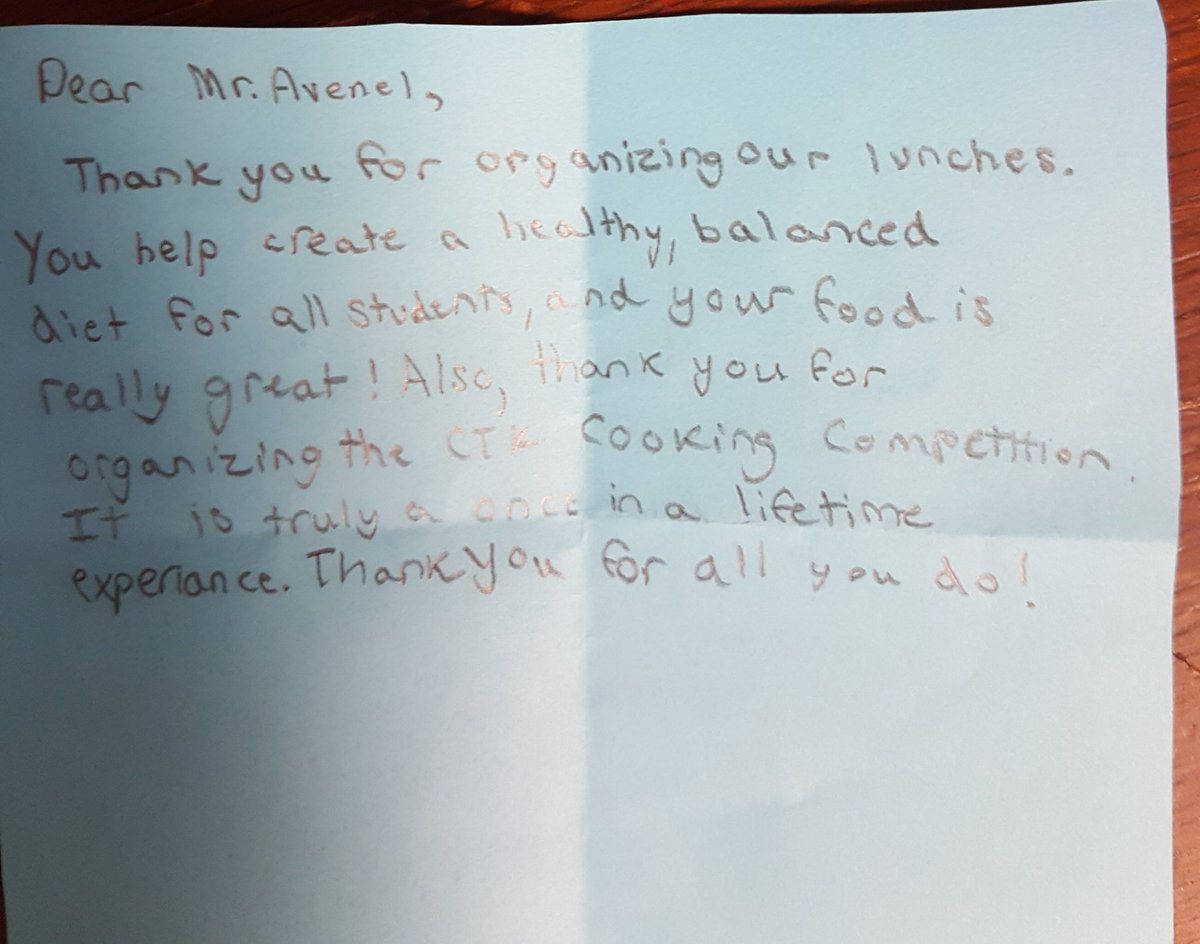 Dear Mr. Avenel,
Thank you for organizing our lunches.
You help create a healthy, balanced
diet for all students, and your food is
really great! Also, thank you for
organizing the CTK Cooking Competition.
It is truly a once in a lifetime
experiance. Thank you for all you do!